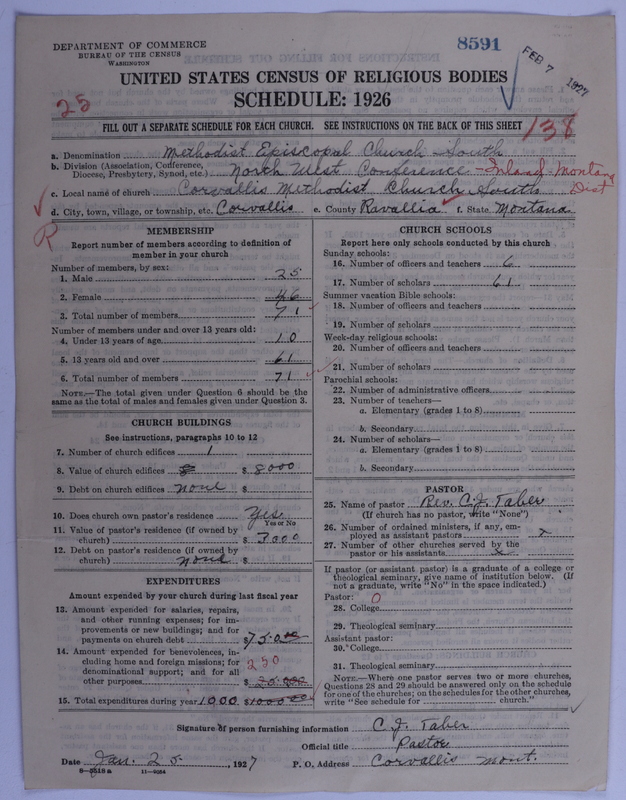 DEPARTMENT OF COMMERCE
BUREAU OF THE CENSUS
WASHINGTON
8591
FEB 7 1927
UNITED STATES CENSUS OF RELIGIOUS BODIES
SCHEDULE: 1926
25
FILL OUT A SEPARATE SCHEDULE FOR EACH CHURCH. SEE INSTRUCTIONS ON THE BACK OF THIS SHEET
138
a. Denomination Methodist Episcopal Church – South
b. Division (Association, Conference, Diocese, Presbytery, Synod, etc.) North West Conference – Inland Montana Dist
c. Local name of church Corvallis Methodist Church South
d. City, town, village, or township, etc. Corvallis e. County Ravallia f. State Montana
R
MEMBERSHIP
Report number of members according to definition of
member in your church
Number of members, by sex:
1. Male 25
2. Female 46
3. Total number of members 71
Number of members under and over 13 years old:
4. Under 13 years of age 10
5. 13 years old and over 61
6. Total number of members 71
NOTE.—The total given under Question 6 should be
same as the total of males and females given under Question 3.
CHURCH BUILDINGS
See instructions, paragraphs 10 to 12
7. Number of church edifices 1
8. Value of church edifices $ $ 8000
9. Debt on church edifices none $
10. Does church own pastor's residence Yes
Yes or No
11. Value of pastor's residence (if owned by
church) $ 3000
12. Debt on pastor's residence (if owned by
church) none $
EXPENDITURES
Amount expended by your church during last fiscal year
13. Amount expended for salaries, repairs,
and other running expenses; for im-
provements or new buildings; and for
payments on church debt $ 750.00
14. Amount expended for benevolences, in-
cluding home and foreign missions; for
denominational support; and for all
other purposes $ 250
15. Total expenditures during year 1000 $ 1000 00
CHURCH SCHOOLS
Report here only schools conducted by this church
Sunday schools:
16. Number of officers and teachers 6
17. Number of scholars 61
Summer vacation Bible schools:
18. Number of officers and teachers
19. Number of scholars
Week-day religious schools:
20. Number of officers and teachers
21. Number of scholars
Parochial schools:
22. Number of administrative officers
23. Number of teachers—
a. Elementary (grades 1 to 8)
b. Secondary
24. Number of scholars—
a. Elementary (grades 1 to 8)
b. Secondary
PASTOR
25. Name of pastor Rev. C. J. Taber
(If church has no pastor, write "None")
26. Number of ordained ministers, if any, em-
ployed as assistant pastors x
27. Number of other churches served by the
pastor or his assistants x
If pastor (or assistant pastor) is a graduate of a college or
theological seminary, give name of institution below. (If
not a graduate, write "No" in the space indicated.)
Pastor: 0
28. College
29. Theological seminary
Assistant pastor:
30. College
31. Theological seminary
NOTE.—Where one pastor serves two or more churches,
Questions 28 and 29 should be answered only on the schedule
for one of the churches; on the schedules for the other churches,
write "See schedule for church."
Signature of person furnishing information C. J. Taber
Official title Pastor
Date Jan. 25, 1927 P. O. Address Corvallis Mont.
8–5518 a 11–9034